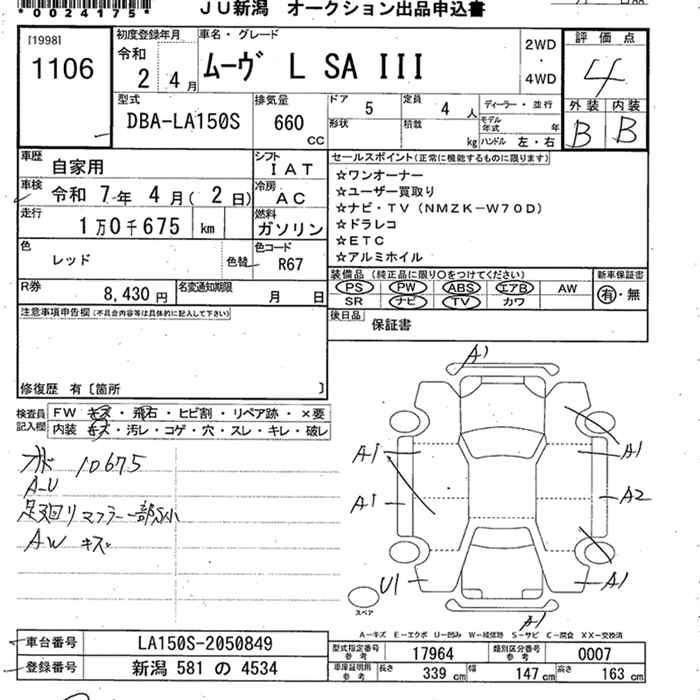 *0024175*
JU新潟 オークション出品申込書
[1998]
1106
初度登録年月
令和
2 4月
車名・グレード
ムーヴ L SA III
2WD
・
4WD
評価点
4
外装 内装
B B
型式
DBA-LA150S
排気量
660
cc
ドア 5
定員 4 人
ディーラー・並行
形状
積載 kg
モデル年式 年
ハンドル 左・右
車歴
自家用
シフト
IAT
セールスポイント(正常に機能するものに限ります)
☆ワンオーナー
☆ユーザー買取り
☆ナビ・TV(NMZK-W70D)
☆ドラレコ
☆ETC
☆アルミホイル
車検 令和 7年 4月(2日)
冷房
AC
走行
1万0千675 km
燃料
ガソリン
色
レッド
色替
色コード
R67
装備品(純正品に限り○をつけてください)
新車保証書
PS PW ABS エアB AW
SR ナビ TV カワ
有・無
R券
8,430円
名変通知期限
月 日
後日品
保証書
注意事項申告欄(不具合内容等は具体的に記入して下さい)
修復歴 有〔箇所 〕
検査員
記入欄
FW キズ・飛石・ヒビ割・リペア跡・×要
内装 キズ・汚レ・コゲ・穴・スレ・キレ・破レ
オド 10675
A-U
足廻り マフラー一部分小
AW キズ
A1
A1
A1
A1
A2
U1
A1
A1
スペア
A-キズ E-エクボ U-凹み W-補修跡 S-サビ C-腐食 XX-交換済
車台番号 LA150S-2050849
登録番号 新潟 581 の 4534
型式指定番号
参考
17964
類別区分番号
参考
0007
車庫証明用
参考
長さ 339 cm
幅 147 cm
高さ 163 cm